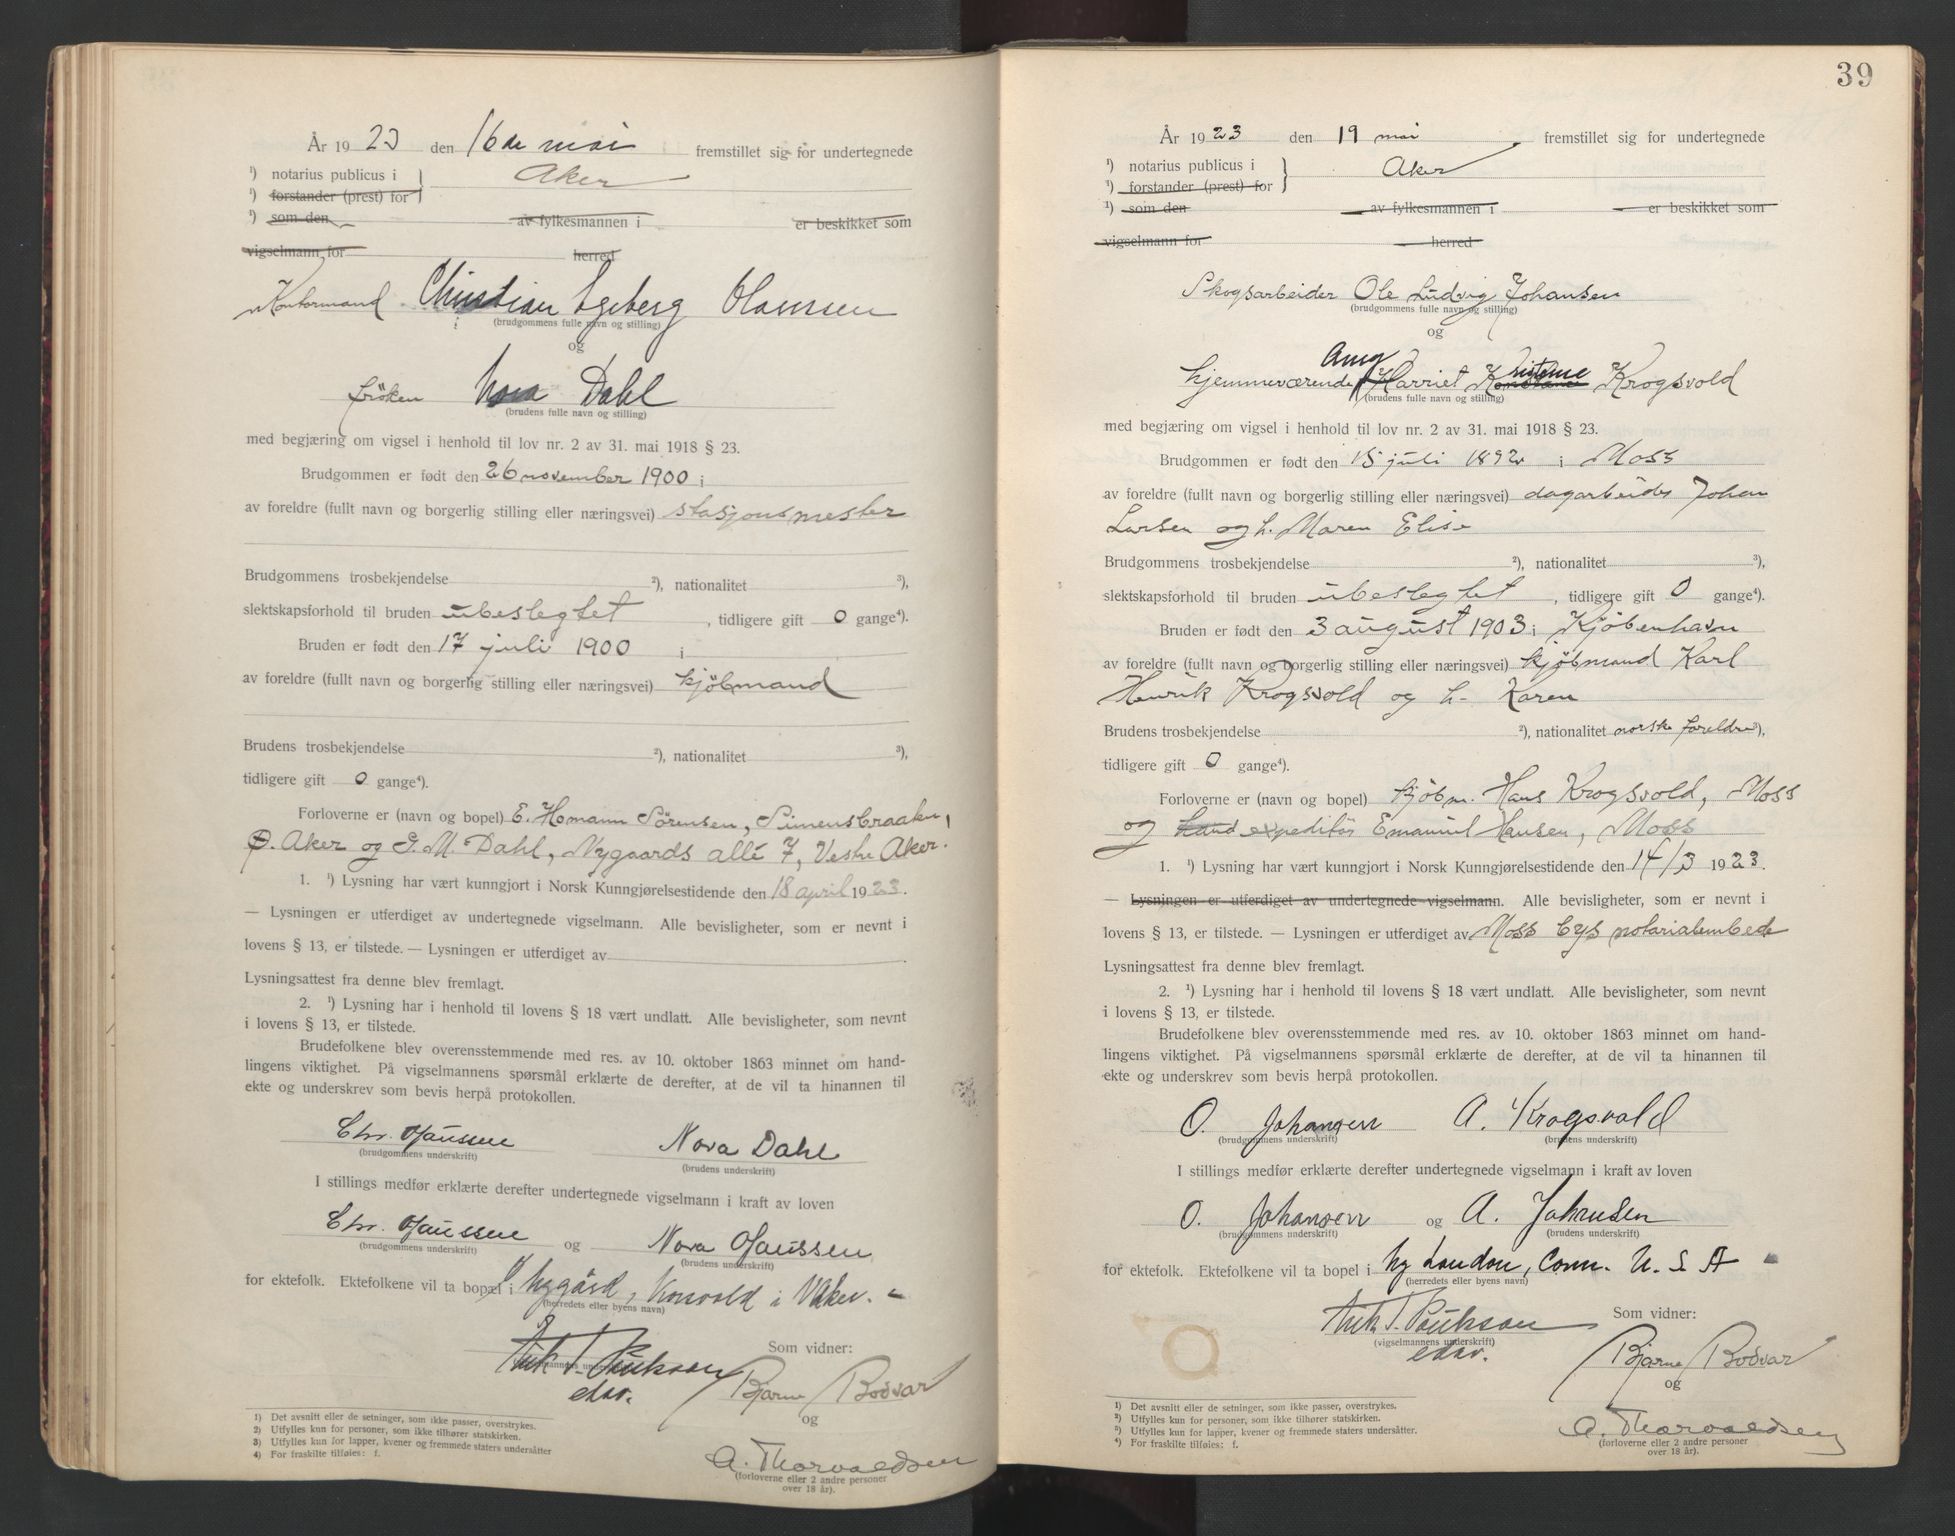 År 1923 den 16de mai fremstillet sig for undertegnede
¹) notarius publicus i Aker
¹) forstander (prest) for
¹) som den av fylkesmannen i er beskikket som
vigselmann for herred
Kontormand Christian Egeberg
(brudgommens fulle navn og stilling)
og
fröken Nora Dahl
(brudens fulle navn og stilling)
med begjæring om vigsel i henhold til lov nr. 2 av 31. mai 1918 § 23.
Brudgommen er født den 26 november 1900 i
av foreldre (fullt navn og borgerlig stilling eller næringsvei) stasjonsmester
Brudgommens trosbekjendelse ²), nationalitet ³),
slektskapsforhold til bruden ubeslegtet, tidligere gift 0 gange⁴).
Bruden er født den 17 juli 1900 i
av foreldre (fullt navn og borgerlig stilling eller næringsvei) kjöbmand
Brudens trosbekjendelse ²), nationalitet ³),
tidligere gift 0 gange⁴).
Forloverne er (navn og bopel) E. Homann Sörensen, Simensbraaten,
Ø. Aker og G. M. Dahl, Nygaards allé 7, Vestre Aker.
1. ¹) Lysning har vært kunngjort i Norsk Kunngjørelsestidende den 18 april 1923.
— Lysningen er utferdiget av undertegnede vigselmann. Alle bevisligheter, som er nevnt i
lovens § 13, er tilstede. — Lysningen er utferdiget av
Lysningsattest fra denne blev fremlagt.
2. ¹) Lysning har i henhold til lovens § 18 vært undlatt. Alle bevisligheter, som nevnt
i lovens § 13, er tilstede.
Brudefolkene blev overensstemmende med res. av 10. oktober 1863 minnet om hand-
lingens viktighet. På vigselmannens spørsmål erklærte de derefter, at de vil ta hinannen til
ekte og underskrev som bevis herpå protokollen.
Chr. Nora Dahl
(brudgommens underskrift) (brudens underskrift)
I stillings medfør erklærte derefter undertegnede vigselmann i kraft av loven
Chr. og Nora
(brudgommens underskrift) (brudens underskrift)
for ektefolk. Ektefolkene vil ta bopæl i Nygård, i V Aker.
(herredets eller byens navn)
Som vidner:
edsv. Bjarne Bodvar
og
A. Thorvaldsen
(forloverne eller 2 andre personer
over 18 år).
1) Det avsnitt eller de setninger, som ikke passer, overstrykes.
2) Utfylles kun for personer, som ikke tilhører statskirken.
3) Utfylles kun for lapper, kvener og fremmede staters undersåtter
4) For fraskilte tilføies: f.
39
År 1923 den 19 mai fremstillet sig for undertegnede
¹) notarius publicus i Aker
¹) forstander (prest) for
¹) som den av fylkesmannen i er beskikket som
vigselmann for herred
Skogsarbeider Ole Ludvig Johansen
(brudgommens fulle navn og stilling)
og
hjemmeværende Anna Harriet Kristine Krogsvold
(brudens fulle navn og stilling)
med begjæring om vigsel i henhold til lov nr. 2 av 31. mai 1918 § 23.
Brudgommen er født den 15 juli 1892 i Moss
av foreldre (fullt navn og borgerlig stilling eller næringsvei) dagarbeider Johan
Larsen og h. Maren Elise
Brudgommens trosbekjendelse ²), nationalitet ³),
slektskapsforhold til bruden ubeslegtet, tidligere gift 0 gange⁴).
Bruden er født den 3 august 1903 i Kjöbenhavn
av foreldre (fullt navn og borgerlig stilling eller næringsvei) kjöbmand Karl
Henrik Krogsvold og h. Karen
Brudens trosbekjendelse ²), nationalitet norske foreldre ³),
tidligere gift 0 gange⁴).
Forloverne er (navn og bopel) kjöbm. Hans Krogsvold, Moss
og expeditör Emanuel Hansen, Moss
1. ¹) Lysning har vært kunngjort i Norsk Kunngjørelsestidende den 14/3 1923.
— Lysningen er utferdiget av undertegnede vigselmann. Alle bevisligheter, som er nevnt i
lovens § 13, er tilstede. — Lysningen er utferdiget av Moss bys notarialembede
Lysningsattest fra denne blev fremlagt.
2. ¹) Lysning har i henhold til lovens § 18 vært undlatt. Alle bevisligheter, som nevnt
i lovens § 13, er tilstede.
Brudefolkene blev overensstemmende med res. av 10. oktober 1863 minnet om hand-
lingens viktighet. På vigselmannens spørsmål erklærte de derefter, at de vil ta hinannen til
ekte og underskrev som bevis herpå protokollen.
O. Johansen A. Krogsvold
(brudgommens underskrift) (brudens underskrift)
I stillings medfør erklærte derefter undertegnede vigselmann i kraft av loven
O. Johansen og A. Johansen
(brudgommens underskrift) (brudens underskrift)
for ektefolk. Ektefolkene vil ta bopel i Ny London, Conn. U.S.A
(herredets eller byens navn)
Som vidner:
(vigselmannens underskrift)
edsv. Bjarne Bodvar
og
A. Thorvaldsen
(forloverne eller 2 andre personer
over 18 år).
¹) Det avsnitt eller de setninger, som ikke passer, overstrykes.
²) Utfylles kun for personer, som ikke tilhører statskirken.
³) Utfylles kun for lapper, kvener og fremmede staters undersåtter.
⁴) For fraskilte tilføies: f.